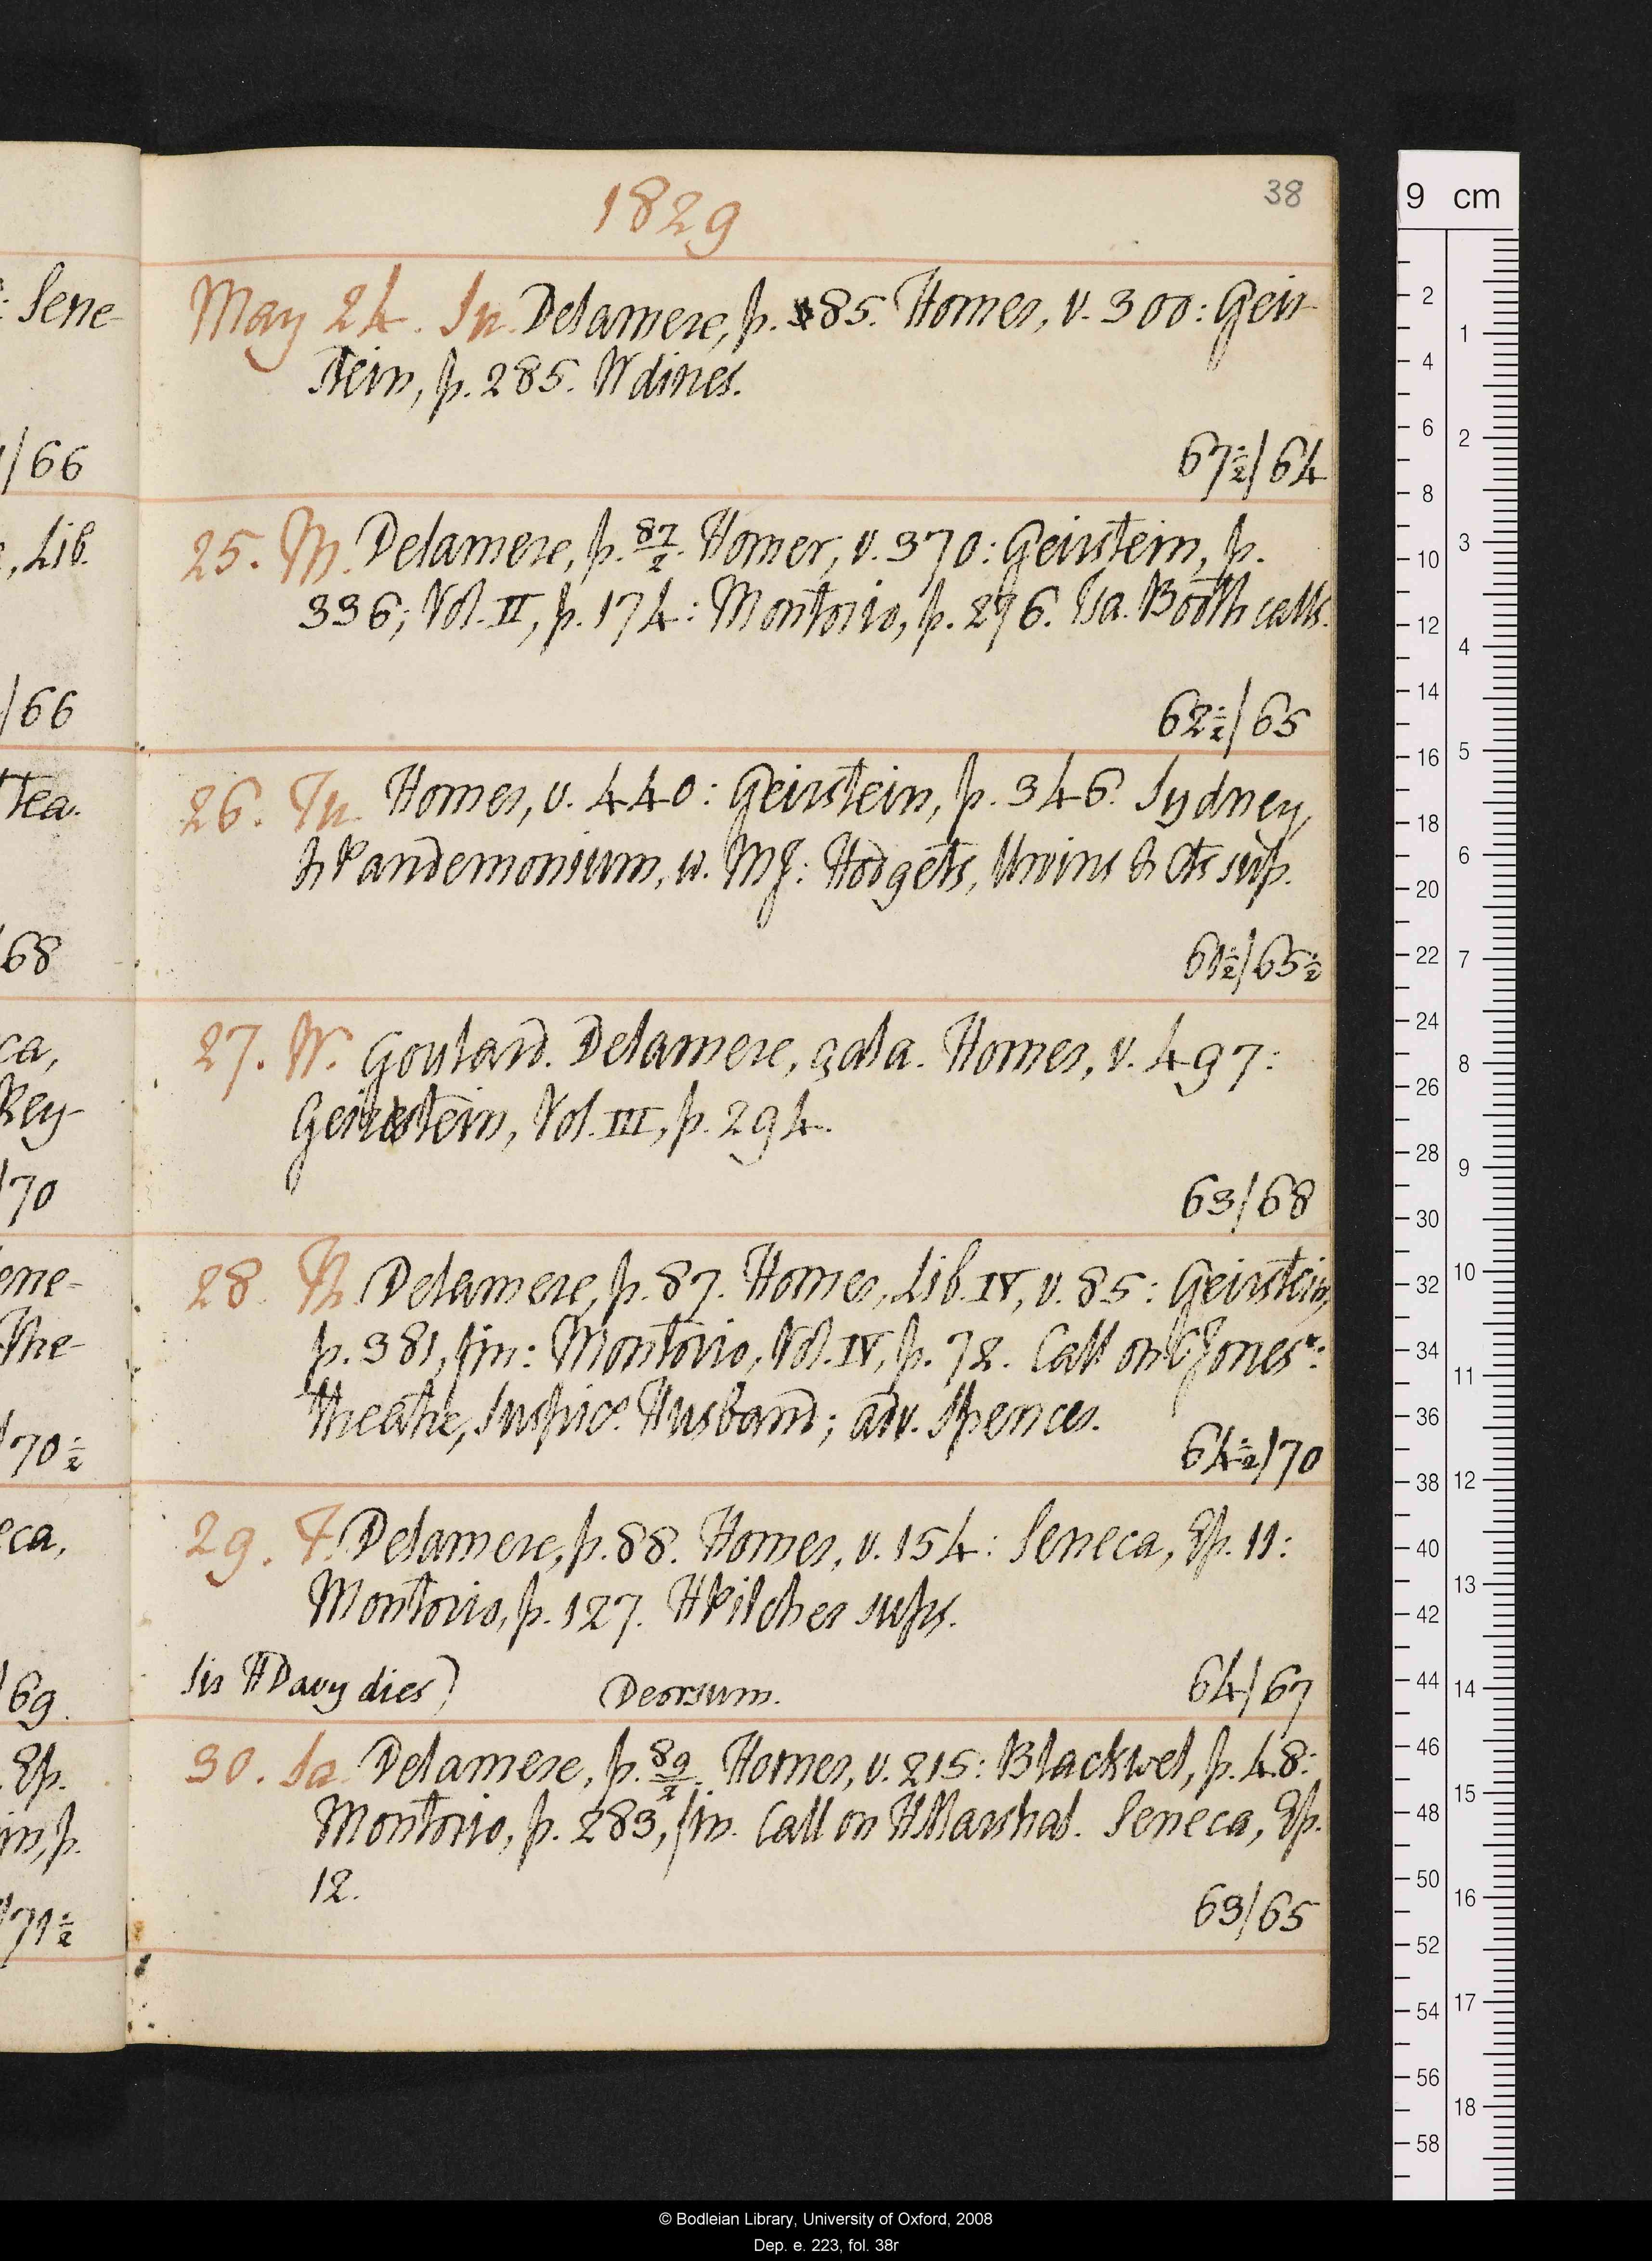 1829
38
: Sene-
/66
, Lib.
/66
Tea.
/68
ca,
Rey-
/70
ene-
The-
/70½
eca,
/69.
. Ep.
in, p.
/71½
May 24. Su. Delamere, p. 85. Homer, v. 300: Geir-
stein, p. 285. W dines.
67½/64
25. M. Delamere, p. 87/2. Homer, v. 370: Geirstein, p.
336; Vol. II, p. 174: Montorio, p. 296. Isa. Booth calls.
62½/65
26. Tu. Homer, v. 440: Geirstein, p. 346. Sydney,
& Pandemonium, w. MJ: Hodgets, Unwins & Cts sup.
61½/65½
27. W. Goulard. Delamere, çala. Homer, v. 497:
Geirstein, Vol. III, p. 294.
63/68
28. Th. Delamere, p. 87. Homer, Lib. IV, v. 85: Geirstein,
p. 381, fin: Montorio, Vol. IV, p. 72. Call on GJones*:
theatre, Suspics Husband; adv. Spences.
64½/70
29. F. Delamere, p. 88. Homer, v. 154: Seneca, Ep. 11:
Montorio, p. 127. HPilcher sups.
Sir HDavy dies) Deorsum.
64/67
30. Sa. Delamere, p. 89/2. Homer, v. 215: Blackwel, p. 48:
Montorio, p. 283, fin. Call on HMarshal. Seneca, Ep.
12.
63/65
9 cm
2
4
6
8
10
12
14
16
18
20
22
24
26
28
30
32
34
36
38
40
42
44
46
48
50
52
54
56
58
1
2
3
4
5
6
7
8
9
10
11
12
13
14
15
16
17
18
© Bodleian Library, University of Oxford, 2008
Dep. e. 223, fol. 38r